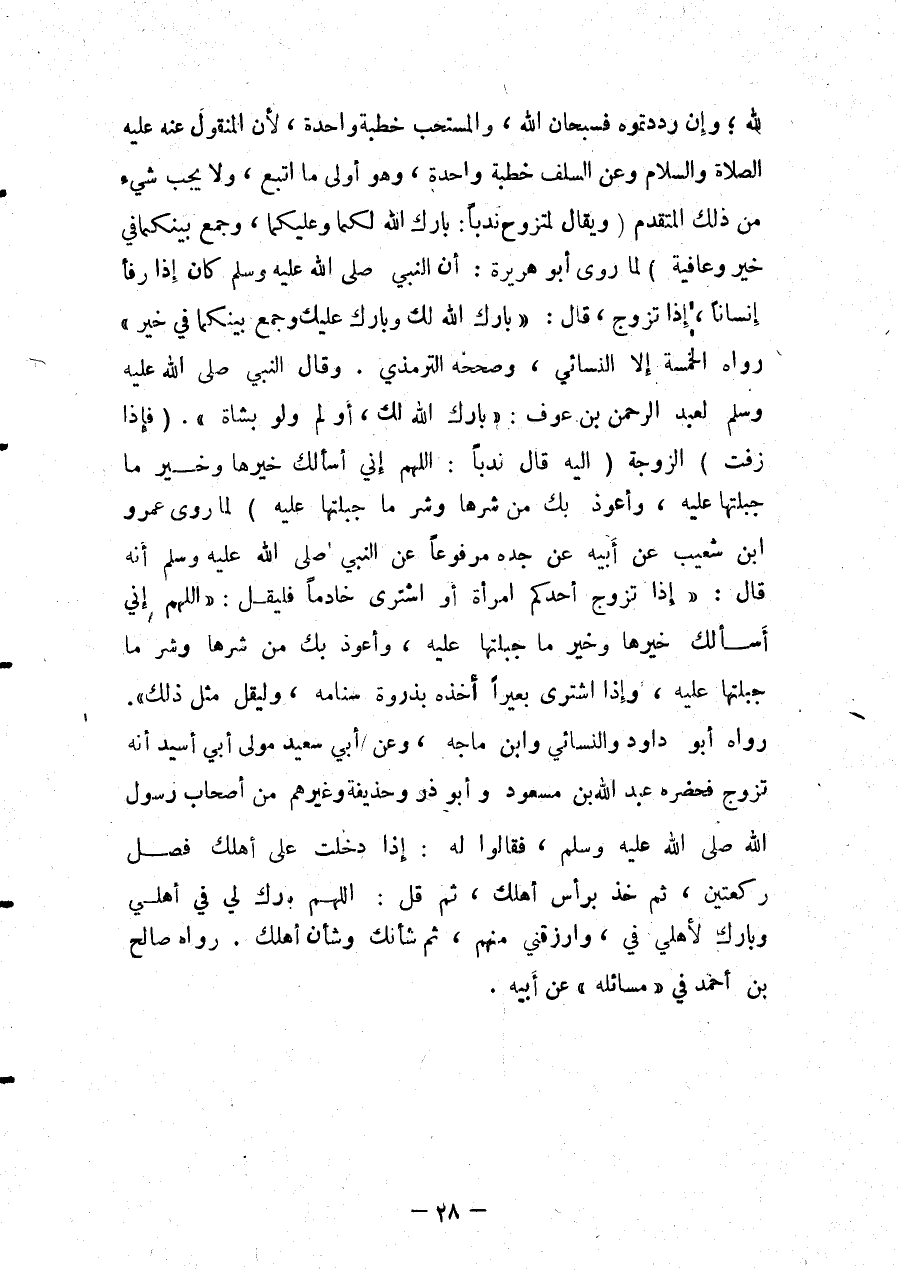 لله ؛ وإن رددتموه فسبحان الله ، والمستحب خطبة واحدة ، لأن المنقول عنه عليه
الصلاة والسلام وعن السلف خطبة واحدة ، وهو أولى ما اتبع ، ولا يجب شيء
من ذلك المتقدم ( ويقال لمتزوج ندباً : بارك الله لكما وعليكما ، وجمع بينكما في
خير وعافية ) لما روى أبو هريرة : أن النبي صلى الله عليه وسلم كان إذا رفأ
إنساناً ، إذا تزوج ، قال : « بارك الله لك وبارك عليك وجمع بينكما في خير »
رواه الخمسة إلا النسائي ، وصححه الترمذي . وقال النبي صلى الله عليه
وسلم لعبد الرحمن بن عوف : « بارك الله لك ، أولم ولو بشاة » . ( فإذا
زفت ) الزوجة ( اليه قال ندباً : اللهم إني أسألك خيرها وخـــير ما
جبلتها عليه ، وأعوذ بك من شرها وشر ما جبلتها عليه ) لما روى عمرو
ابن شعيب عن أبيه عن جده مرفوعاً عن النبي صلى الله عليه وسلم أنه
قال : « إذا تزوج أحدكم امرأة أو اشترى خادماً فليقـل : « اللهم إني
أســألك خيرها وخير ما جبلتها عليه ، وأعوذ بك من شرها وشر ما
جبلتها عليه ، وإذا اشترى بعيراً أخذه بذروة سنامه ، وليقل مثل ذلك».
رواه أبو داود والنسائي وابن ماجه ، وعن أبي سعيد مولى أبي أسيد أنه
تزوج فحضره عبد الله بن مسعود وأبو ذر وحذيفة وغيرهم من أصحاب رسول
الله صلى الله عليه وسلم ، فقالوا له : إذا دخلت على أهلك فصــل
ركعتين ، ثم خذ برأس أهلك ، ثم قل : اللهـم بارك لي في أهلـي
وبارك لأهلي في ، وارزقني منهم ، ثم شأنك وشأن أهلك . رواه صالح
بن أحمد في « مسائله » عن أبيه .
— ٢٨ —